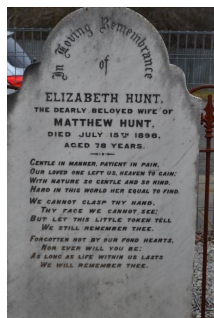 In Loving Remembrance
of
ELIZABETH HUNT.
THE DEARLY BELOVED WIFE OF
MATTHEW HUNT,
DIED JULY 15TH 1898,
AGED 78 YEARS.
GENTLE IN MANNER, PATIENT IN PAIN,
OUR LOVED ONE LEFT US, HEAVEN TO GAIN;
WITH NATURE SO GENTLE AND SO KIND,
HARD IN THIS WORLD HER EQUAL TO FIND.
WE CANNOT CLASP THY HAND,
THY FACE WE CANNOT SEE;
BUT LET THIS LITTLE TOKEN TELL
WE STILL REMEMBER THEE.
FORGOTTEN NOT BY OUR FOND HEARTS,
NOR EVER WILL YOU BE;
AS LONG AS LIFE WITHIN US LASTS
WE WILL REMEMBER THEE.